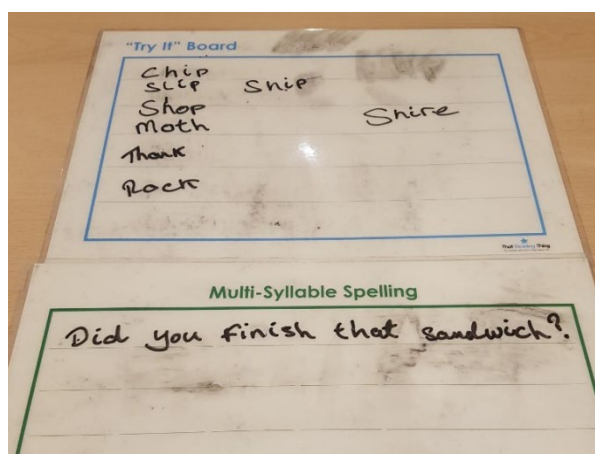 "Try It" Board
Chip
Slip Snip
Shop
Moth Shire
Thank
Rock
That Reading Thing
Multi-Syllable Spelling
Did you finish that sandwich?